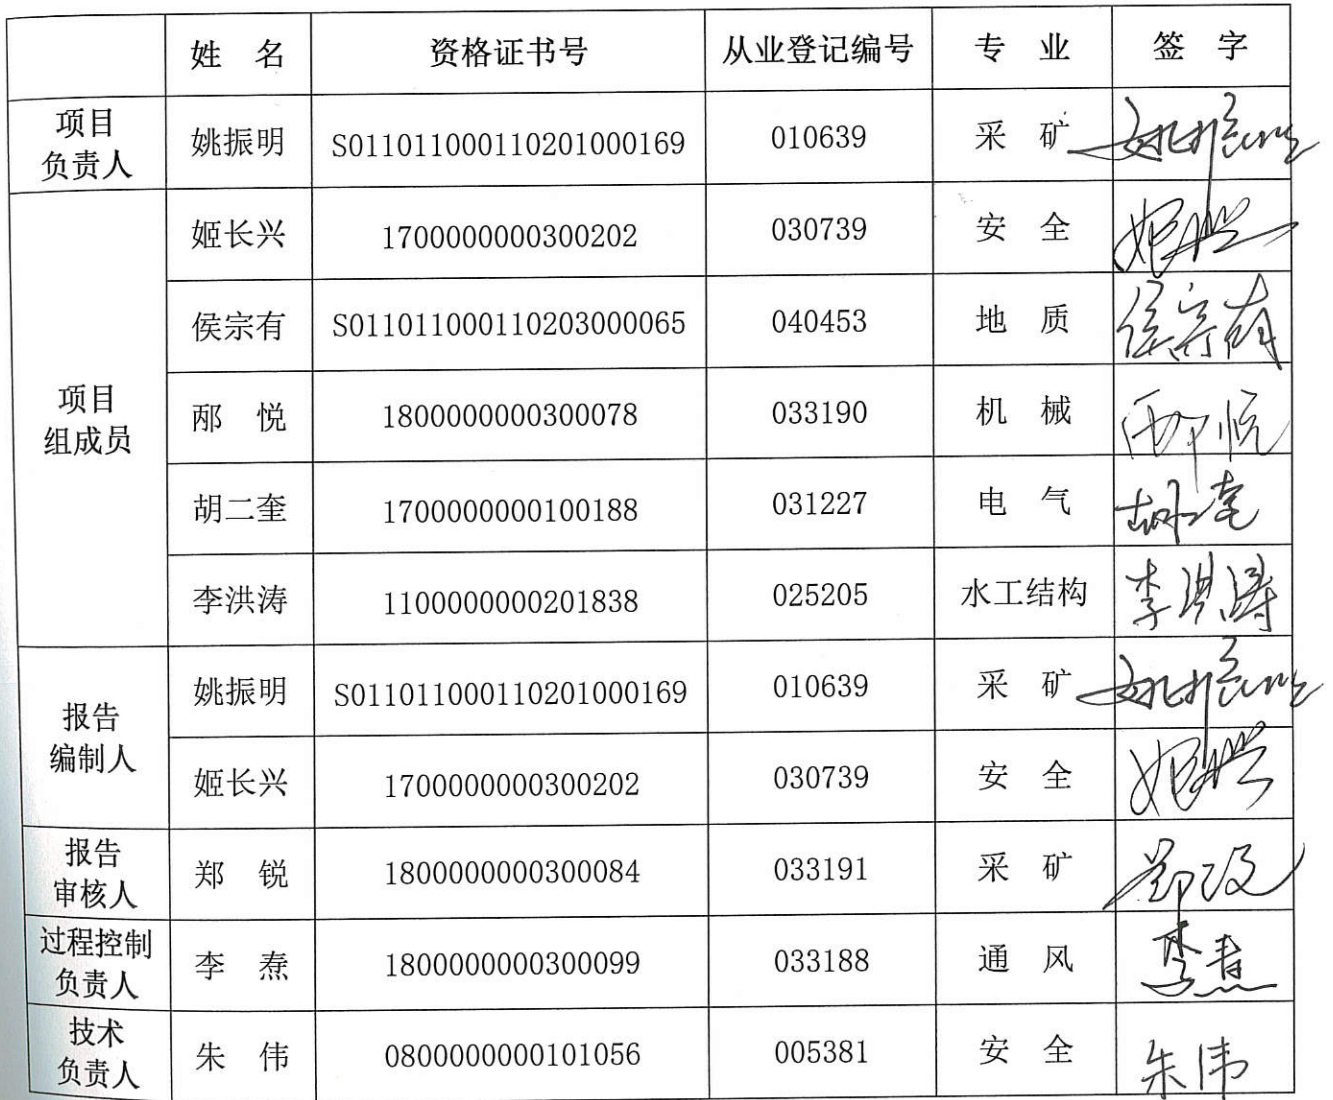 姓 名 资格证书号 从业登记编号 专 业 签 字
项目
负责人 姚振明 S011011000110201000169 010639 采 矿 姚振明
姬长兴 1700000000300202 030739 安 全 姬长兴
侯宗有 S011011000110203000065 040453 地 质 侯宗有
项目
组成员 邴 悦 1800000000300078 033190 机 械 邴悦
胡二奎 1700000000100188 031227 电 气 胡二奎
李洪涛 1100000000201838 025205 水工结构 李洪涛
报告
编制人 姚振明 S011011000110201000169 010639 采 矿 姚振明
姬长兴 1700000000300202 030739 安 全 姬长兴
报告
审核人 郑 锐 1800000000300084 033191 采 矿 郑锐
过程控制
负责人 李 焘 1800000000300099 033188 通 风
技术
负责人 朱 伟 0800000000101056 005381 安 全 朱伟